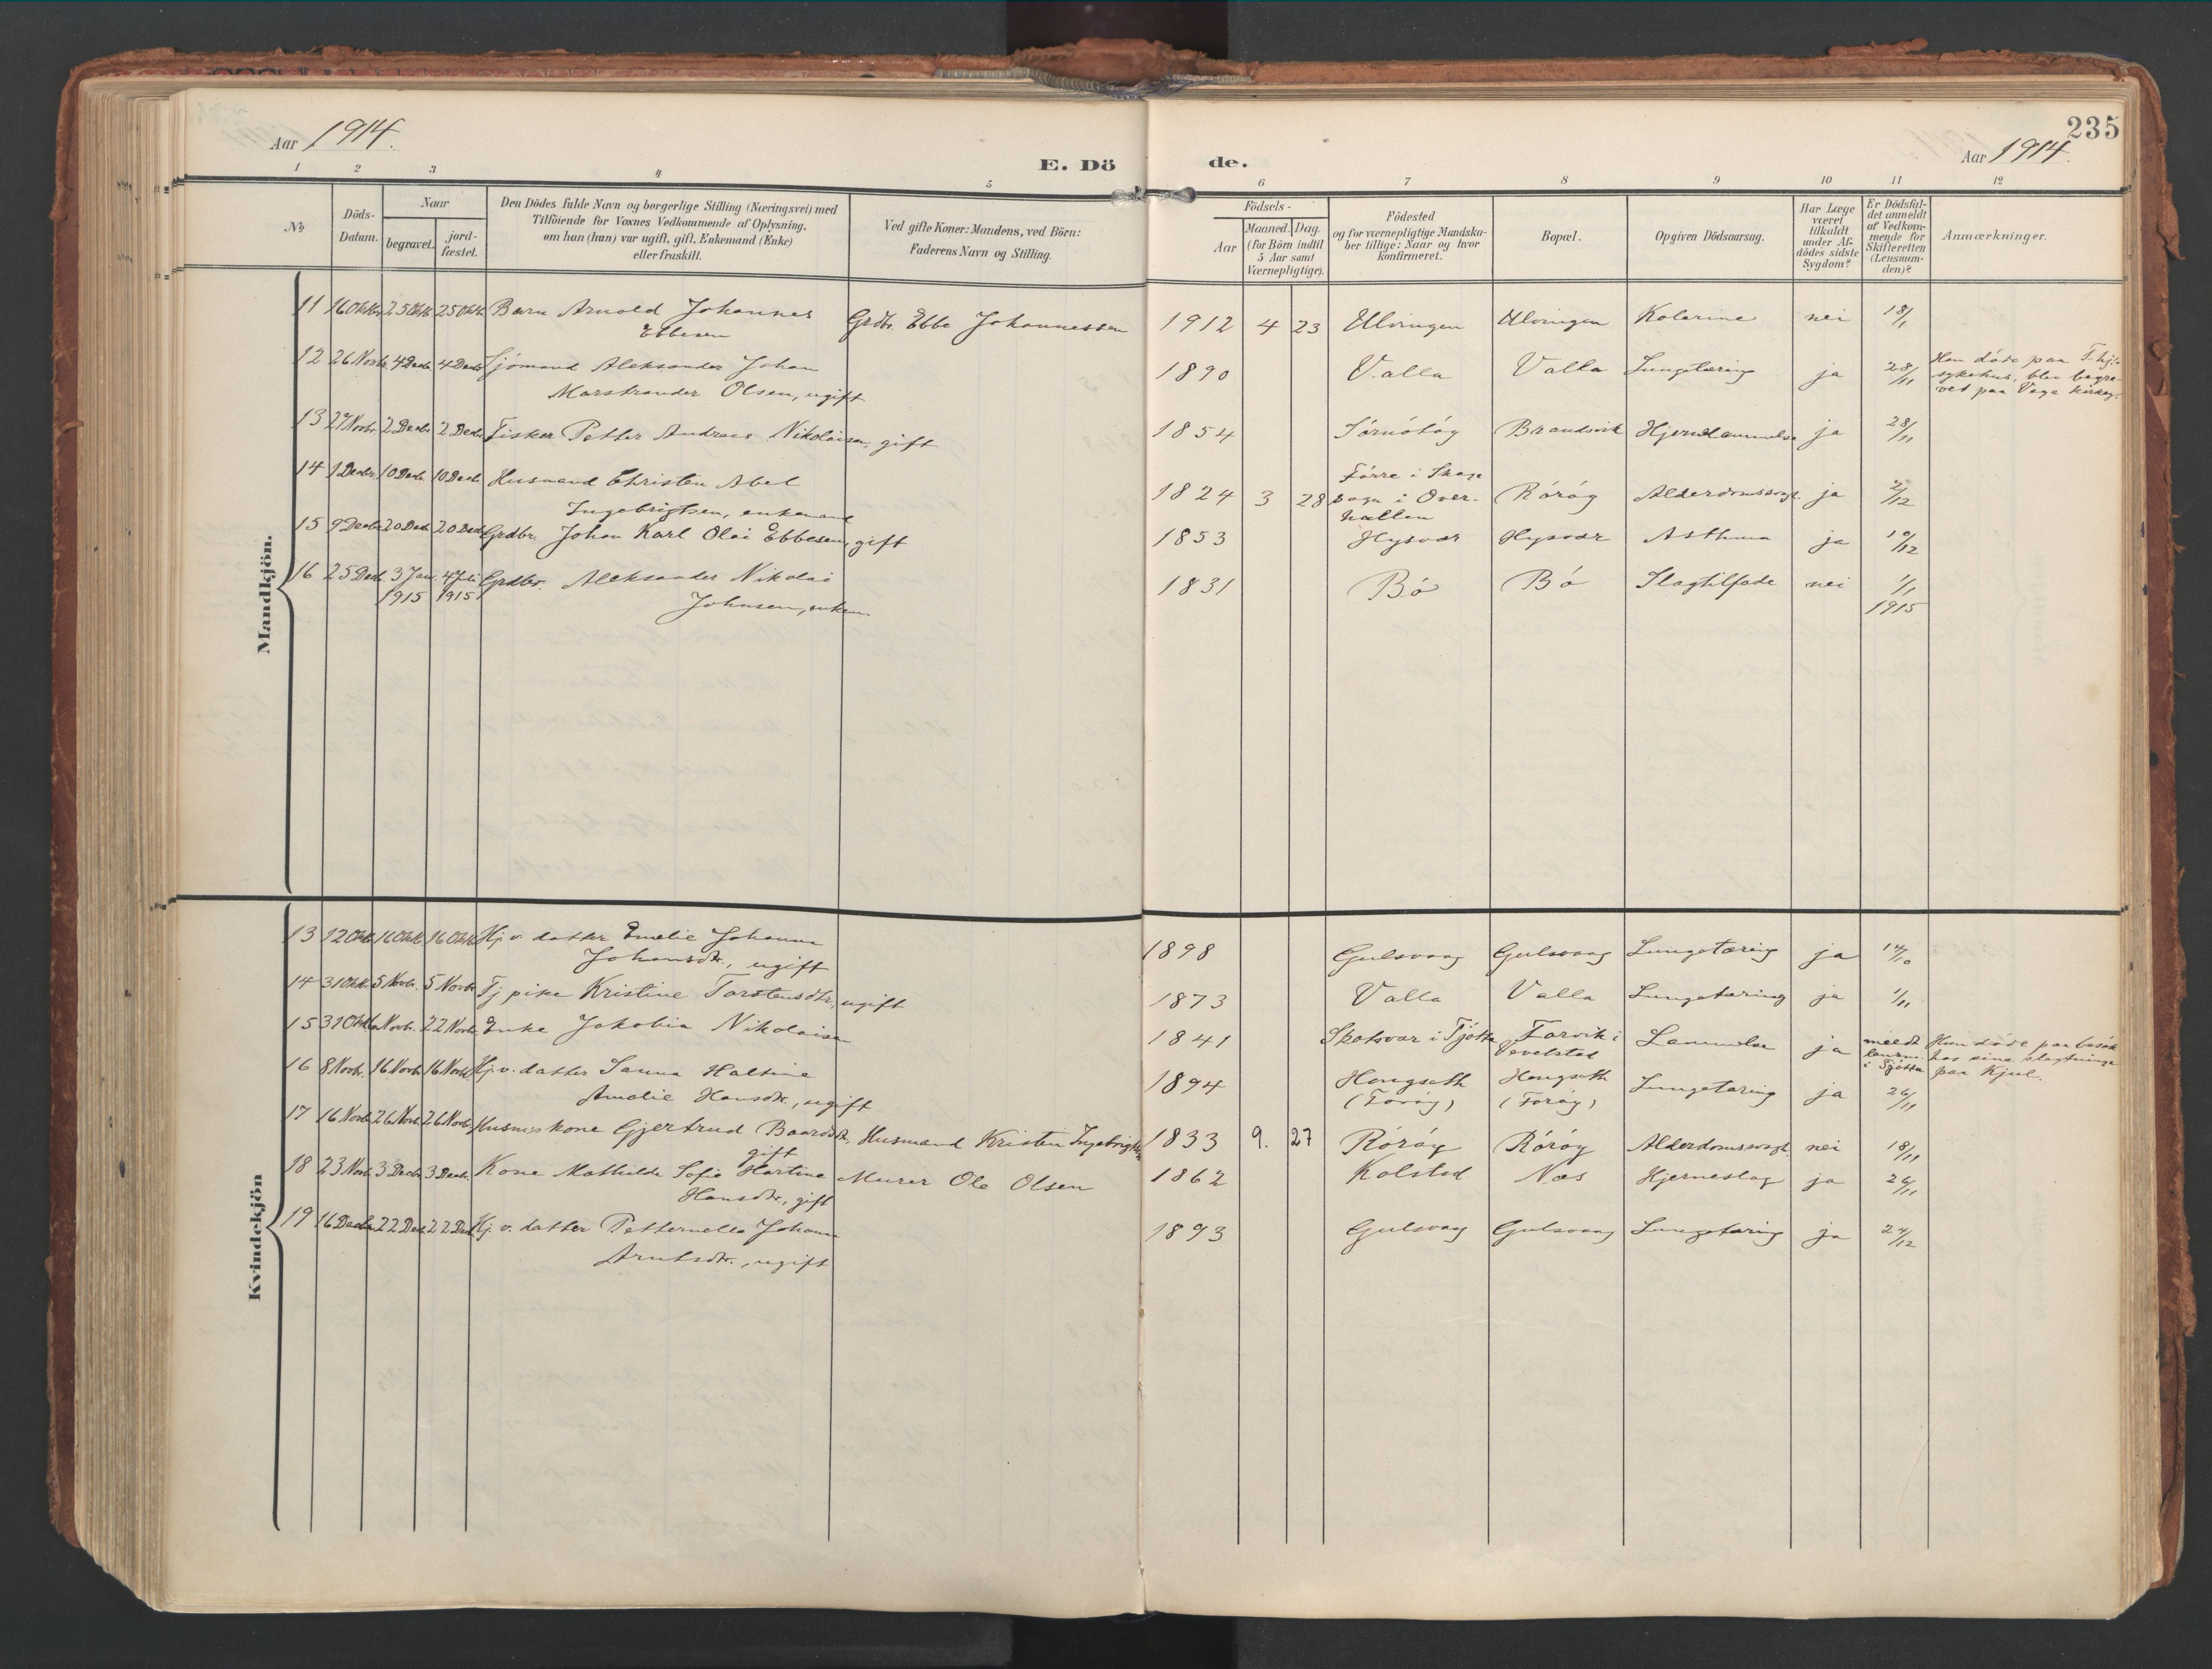 235
Aar 1914.
E. Dö
de.
Aar 1914.
1 2 3 4 5 6 7 8 9 10 11 12
No
Döds-
Datum.
Naar
begravet.
jord-
fæstet.
Den Dödes fulde Navn og borgerlige Stilling (Næringsvei) med
Tilföiende for Voxnes Vedkommende af Oplysning,
om han (hun) var ugift, gift, Enkemand (Enke)
eller fraskilt.
Ved gifte Koner: Mandens, ved Börn:
Faderens Navn og Stilling.
Födsels-
Aar
Maaned. Dag.
(for Börn indtil
5 Aar samt
Værnepligtige).
Födested
og for værnepligtige Mandska-
ber tillige: Naar og hvor
konfirmeret.
Bopæl.
Opgiven Dödsaarsag.
Har Læge
været
tilkaldt
under Af-
dödes sidste
Sygdom?
Er Dödsfal-
det anmeldt
af Vedkom-
mende for
Skifteretten
(Lensman-
den)?
Anmærkninger.
Mandkjön.
11 16 Oktbr. 25 Oktb. 25 Oktb. Barn Arnold Johannes Grdbr. Ebbe Johannessen 1912 4 23 Ulvingen Ulvingen Kolerine nei 18/1
Ebbesen
12 26 Novb. 4 Decb. 4 Decb. Sjömand Aleksander Johan 1890 Valla Valla Lungetæring ja 28/11 Han döde paa T-hj.s
Marstrander Olsen, ugift sykehus, blev begra-
vet paa Vega kirkeg.
13 27 Novbr. 2 Decb. 2 Decb. Fisker Petter Andreas Nikolaisen, gift 1854 Sörnötöy Brandsvik Hjernelammelse ja 28/11
14 1 Decbr. 10 Decb. 10 Decb. Husmand Christen Abel 1824 3 28 Förre i Skage
Ingebrigtsen, enkemand sogn i Over- Röröy Alderdomssvagh. ja 2/12
hallen
15 9 Decbr. 20 Decb. 20 Decb. Grdbr. Johan Karl Olai Ebbesen, gift 1853 Hysvær Hysvær Asthma ja 10/12
16 25 Decb. 3 Jan. 4 Juli Grdbr. Aleksander Nikolai 1831 Bö Bö Slagtilfæde nei 1/1
1915 1915 Johnsen, enkem. 1915
Kvindekjön
13 12 Oktb. 16 Oktb. 16 Oktb. Hj. v. datter Emelie Johanna 1898 Gulsvaag Gulsvaag Lungetæring ja 14/10
Johansdtr., ugift
14 31 Oktb. 5 Novb. 5 Novb. Tj pike Kristine Torstensdtr, ugift 1873 Valla Valla Lungetæring ja 1/11
15 31 Oktb. Novb. 22 Novb. Enke Jakobia Nikolaisen 1841 Skotsvær i Tjötta Forvik i Lammelse ja meldt Hun döde paa besök
Vevelstad lensm. hos sine slegtninge
i Tjötta paa Kjul.
16 8 Novb. 16 Novb. 16 Novb. Hj. v. datter Sanna Haltine 1894 Hongseth Hongseth Lungetæring ja 26/11
Amalie Hansdtr., ugift (Toröy) (Toröy)
17 16 Novb. 26 Novb. 26 Novb. Husm.s kone Gjertrud Baardsdtr. Husmand Kristen Ingebrigtsen 1833 9. 27 Röröy Röröy Alderdomssvagh. nei 18/11
gift
18 23 Novb. 3 Decb. 3 Decb. Kone Mathilde Sofie Hartine Murer Ole Olsen 1862 Kolstad Næs Hjerneslag ja 26/11
Hansdtr., gift
19 16 Decbr. 22 Decb. 22 Decb. Hj. v. datter Petternelle Johan 1893 Gulsvaag Gulsvaag Lungetæring ja 24/12
Arntsdtr., ugift